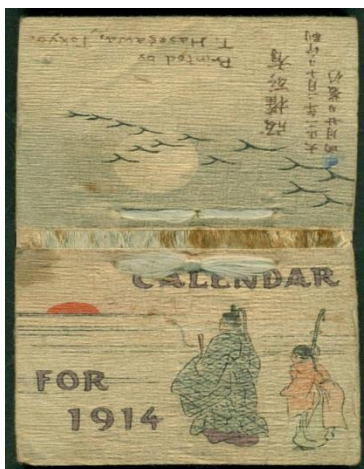 Printed by
T. Hasegawa, Tokyo.
版權所有
大正二年
CALENDAR
FOR
1914